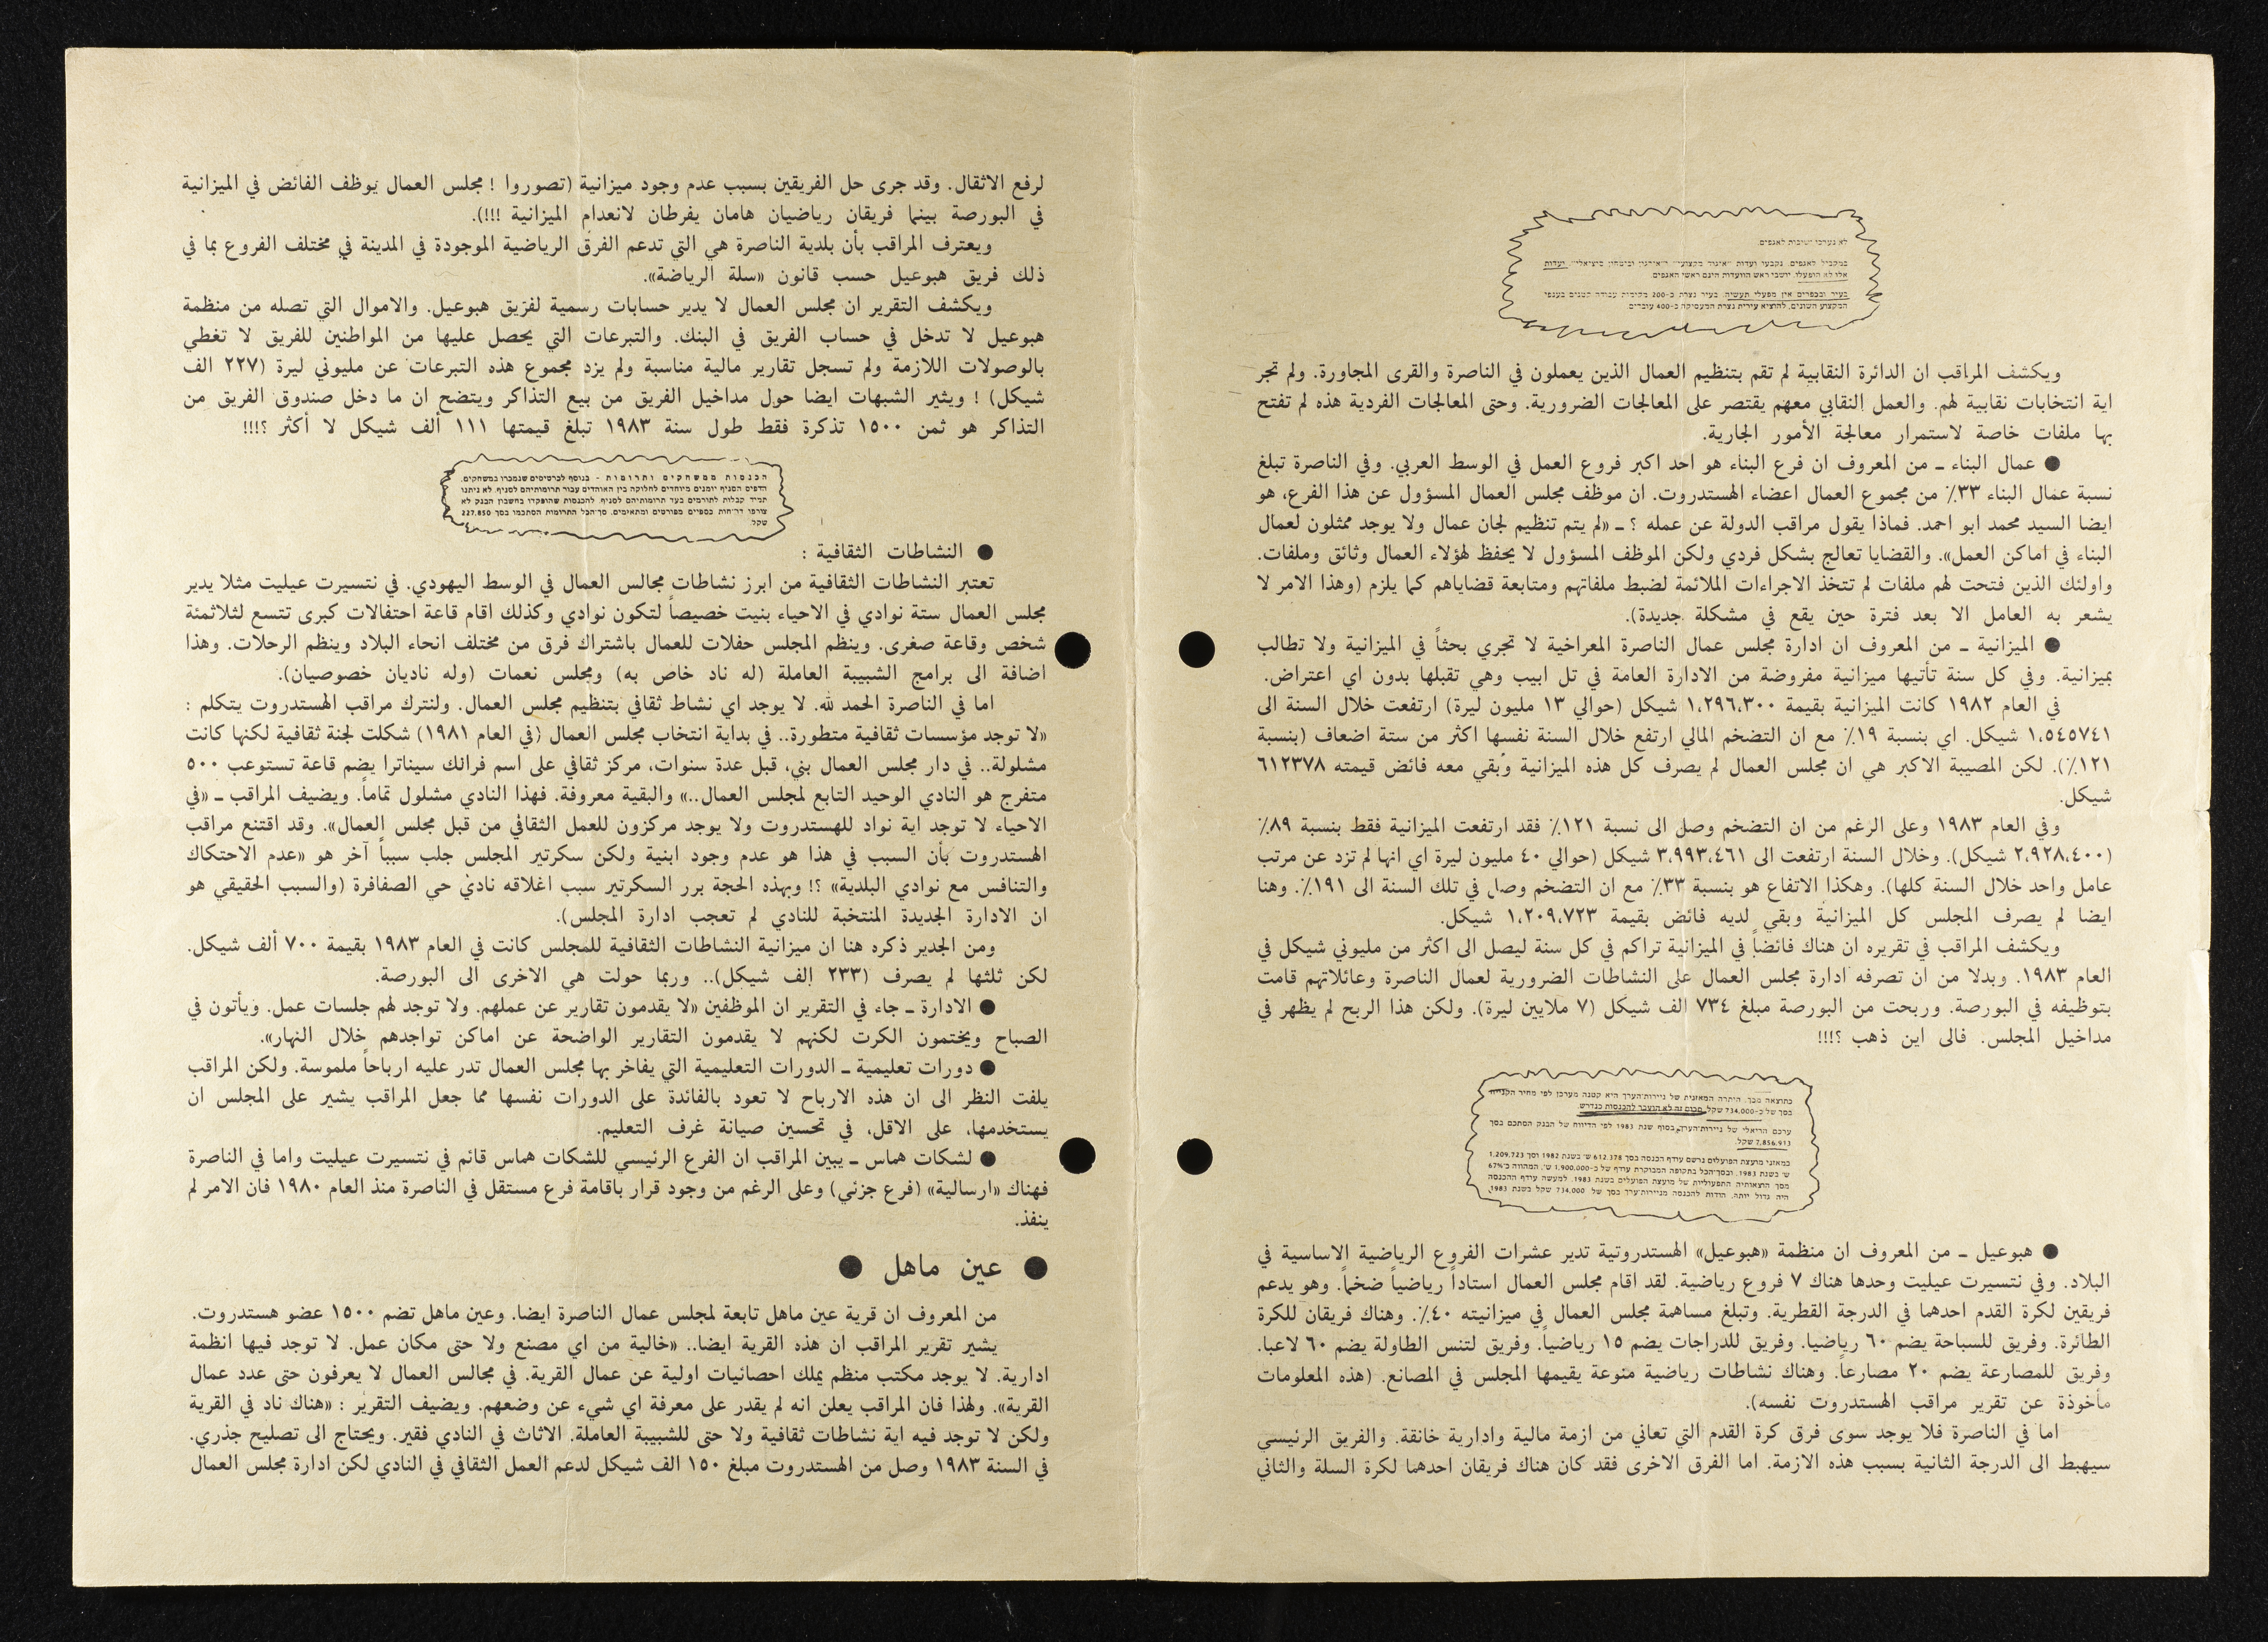 לא נערכו ישיבות לאגפים.
במקביל לאגפים, נקבעו ועדות "איגוד מקצועי" ו"ארגון וביטחון סוציאלי". ועדות
אלו לא הופעלו. יושבי ראש הוועדות הינם ראשי האגפים
בעיר ובכפרים אין מפעלי תעשיה. בעיר נצרת כ-200 מקומות עבודה קטנים בענפי
המקצוע השונים, להוציא עירית נצרת המעסיקה כ-400 עובדים
ويكشف المراقب ان الدائرة النقابية لم تقم بتنظيم العمال الذين يعملون في الناصرة والقرى المجاورة. ولم تجر
اية انتخابات نقابية لهم. والعمل النقابي معهم يقتصر على المعالجات الضرورية. وحتى المعالجات الفردية هذه لم تفتح
بها ملفات خاصة لاستمرار معالجة الأمور الجارية.
● عمال البناء ـ من المعروف ان فرع البناء هو احد اكبر فروع العمل في الوسط العربي. وفي الناصرة تبلغ
نسبة عمال البناء ٣٣٪ من مجموع العمال اعضاء الهستدروت. ان موظف مجلس العمال المسؤول عن هذا الفرع، هو
ايضا السيد محمد ابو احمد. فماذا يقول مراقب الدولة عن عمله ؟ ـ «لم يتم تنظيم لجان عمال ولا يوجد ممثلون لعمال
البناء في اماكن العمل». والقضايا تعالج بشكل فردي ولكن الموظف المسؤول لا يحفظ لهؤلاء العمال وثائق وملفات.
واولئك الذين فتحت لهم ملفات لم تتخذ الاجراءات الملائمة لضبط ملفاتهم ومتابعة قضاياهم كما يلزم (وهذا الامر لا
يشعر به العامل الا بعد فترة حين يقع في مشكلة جديدة).
● الميزانية ـ من المعروف ان ادارة مجلس عمال الناصرة المعراخية لا تجري بحثاً في الميزانية ولا تطالب
بميزانية. وفي كل سنة تأتيها ميزانية مفروضة من الادارة العامة في تل ابيب وهي تقبلها بدون اي اعتراض.
في العام ١٩٨٢ كانت الميزانية بقيمة ١،٢٩٦،٣٠٠ شيكل (حوالي ١٣ مليون ليرة) ارتفعت خلال السنة الى
١،٥٤٥٧٤١ شيكل. اي بنسبة ١٩٪ مع ان التضخم المالي ارتفع خلال السنة نفسها اكثر من ستة اضعاف (بنسبة
١٢١٪). لكن المصيبة الاكبر هي ان مجلس العمال لم يصرف كل هذه الميزانية وبقي معه فائض قيمته ٦١٢٣٧٨
شيكل.
وفي العام ١٩٨٣ وعلى الرغم من ان التضخم وصل الى نسبة ١٢١٪ فقد ارتفعت الميزانية فقط بنسبة ٨٩٪
(٢،٩٢٨،٤٠٠ شيكل). وخلال السنة ارتفعت الى ٣،٩٩٣،٤٦١ شيكل (حوالي ٤٠ مليون ليرة اي انها لم تزد عن مرتب
عامل واحد خلال السنة كلها). وهكذا الاتفاع هو بنسبة ٣٣٪ مع ان التضخم وصل في تلك السنة الى ١٩١٪. وهنا
ايضا لم يصرف المجلس كل الميزانية وبقي لديه فائض بقيمة ١،٢٠٩،٧٢٣ شيكل.
ويكشف المراقب في تقريره ان هناك فائضاً في الميزانية تراكم في كل سنة ليصل الى اكثر من مليوني شيكل في
العام ١٩٨٣. وبدلا من ان تصرفه ادارة مجلس العمال على النشاطات الضرورية لعمال الناصرة وعائلاتهم قامت
بتوظيفه في البورصة. وربحت من البورصة مبلغ ٧٣٤ الف شيكل (٧ ملايين ليرة). ولكن هذا الربح لم يظهر في
مداخيل المجلس. فالى اين ذهب ؟!!!
כתוצאה מכך, היתרה המאזנית של ניירות־הערך היא קטנה מערכן לפי מחיר הקנייה
בסך של כ-734.000 שקל. סכום זה לא הוצבר להכנסות כנדרש.
ערכם הריאלי של ניירות־הערך, בסוף שנת 1983 לפי הדיווח של הבנק הסתכם בסך
7,856.913 שקל.
במאזני מועצת הפועלים נרשם עודף הכנסה בסך 612.378 ש' בשנת 1982 וסך 1,209.723
ש' בשנת 1983. ובסך־הכל בתקופה המבוקרת עודף של כ-1,900,000 ש', המהווה כ־67%
מסך ההוצאותיה התפעוליות של מועצת הפועלים בשנת 1983. למעשה עודף ההכנסה
היה גדול יותר, הודות להכנסה מניירות־ערך בסך של 734,000 שקל בשנת 1983
● هبوعيل ـ من المعروف ان منظمة «هبوعيل» الهستدروتية تدير عشرات الفروع الرياضية الاساسية في
البلاد. وفي نتسيرت عيليت وحدها هناك ٧ فروع رياضية. لقد اقام مجلس العمال استاداً رياضياً ضخماً. وهو يدعم
فريقين لكرة القدم احدهما في الدرجة القطرية. وتبلغ مساهمة مجلس العمال في ميزانيته ٤٠٪. وهناك فريقان للكرة
الطائرة. وفريق للسباحة يضم ٦٠ رياضيا. وفريق للدراجات يضم ١٥ رياضياً. وفريق لتنس الطاولة يضم ٦٠ لاعبا.
وفريق للمصارعة يضم ٢٠ مصارعاً. وهناك نشاطات رياضية منوعة يقيمها المجلس في المصانع. (هذه المعلومات
مأخوذة عن تقرير مراقب الهستدروت نفسه).
اما في الناصرة فلا يوجد سوى فرق كرة القدم التي تعاني من ازمة مالية وادارية خانقة. والفريق الرئيسي
سيهبط الى الدرجة الثانية بسبب هذه الازمة. اما الفرق الاخرى فقد كان هناك فريقان احدهما لكرة السلة والثاني
لرفع الاثقال. وقد جرى حل الفريقين بسبب عدم وجود ميزانية (تصوروا ! مجلس العمال يوظف الفائض في الميزانية
في البورصة بينما فريقان رياضيان هامان يفرطان لانعدام الميزانية !!!).
ويعترف المراقب بأن بلدية الناصرة هي التي تدعم الفرق الرياضية الموجودة في المدينة في مختلف الفروع بما في
ذلك فريق هبوعيل حسب قانون «سلة الرياضة».
ويكشف التقرير ان مجلس العمال لا يدير حسابات رسمية لفريق هبوعيل. والاموال التي تصله من منظمة
هبوعيل لا تدخل في حساب الفريق في البنك. والتبرعات التي يحصل عليها من المواطنين للفريق لا تغطي
بالوصولات اللازمة ولم تسجل تقارير مالية مناسبة ولم يزد مجموع هذه التبرعات عن مليوني ليرة (٢٢٧ الف
شيكل) ! ويثير الشبهات ايضا حول مداخيل الفريق من بيع التذاكر ويتضح ان ما دخل صندوق الفريق من
التذاكر هو ثمن ١٥٠٠ تذكرة فقط طول سنة ١٩٨٣ تبلغ قيمتها ١١١ ألف شيكل لا أكثر ؟!!!
הכנסות ממשחקים ותרומות - בנוסף לכרטיסים שנמכרו במשחקים,
הדפיס הסניף יומנים מיוחדים לחלוקה בין האוהדים עבור תרומותיהם לסניף. לא ניתנו
תמיד קבלות לתורמים בעד תרומותיהם לסניף. להכנסות שהופקדו בחשבון הבנק לא
צורפו דו־חות כספיים מפורטים ומתאימים. סך־הכל התרומות הסתכמו בסך 227.850
שקל.
● النشاطات الثقافية :
تعتبر النشاطات الثقافية من ابرز نشاطات مجالس العمال في الوسط اليهودي. في نتسيرت عيليت مثلا يدير
مجلس العمال ستة نوادي في الاحياء بنيت خصيصاً لتكون نوادي وكذلك اقام قاعة احتفالات كبرى تتسع لثلاثمئة
شخص وقاعة صغرى. وينظم المجلس حفلات للعمال باشتراك فرق من مختلف انحاء البلاد وينظم الرحلات. وهذا
اضافة الى برامج الشبيبة العاملة (له ناد خاص به) ومجلس نعمات (وله ناديان خصوصيان).
اما في الناصرة الحمد لله. لا يوجد اي نشاط ثقافي بتنظيم مجلس العمال. ولنترك مراقب الهستدروت يتكلم :
«لا توجد مؤسسات ثقافية متطورة.. في بداية انتخاب مجلس العمال (في العام ١٩٨١) شكلت لجنة ثقافية لكنها كانت
مشلولة.. في دار مجلس العمال بني، قبل عدة سنوات، مركز ثقافي على اسم فرانك سيناترا يضم قاعة تستوعب ٥٠٠
متفرج هو النادي الوحيد التابع لمجلس العمال..» والبقية معروفة. فهذا النادي مشلول تماماً. ويضيف المراقب ـ «في
الاحياء لا توجد اية نواد للهستدروت ولا يوجد مركزون للعمل الثقافي من قبل مجلس العمال». وقد اقتنع مراقب
الهستدروت بأن السبب في هذا هو عدم وجود ابنية ولكن سكرتير المجلس جلب سبباً آخر هو «عدم الاحتكاك
والتنافس مع نوادي البلدية» ؟! وبهذه الحجة برر السكرتير سبب اغلاقه نادي حي الصفافرة (والسبب الحقيقي هو
ان الادارة الجديدة المنتخبة للنادي لم تعجب ادارة المجلس).
ومن الجدير ذكره هنا ان ميزانية النشاطات الثقافية للمجلس كانت في العام ١٩٨٣ بقيمة ٧٠٠ ألف شيكل.
لكن ثلثها لم يصرف (٢٣٣ الف شيكل).. وربما حولت هي الاخرى الى البورصة.
● الادارة ـ جاء في التقرير ان الموظفين «لا يقدمون تقارير عن عملهم. ولا توجد لهم جلسات عمل. ويأتون في
الصباح ويختمون الكرت لكنهم لا يقدمون التقارير الواضحة عن اماكن تواجدهم خلال النهار».
● دورات تعليمية ـ الدورات التعليمية التي يفاخر بها مجلس العمال تدر عليه ارباحاً ملموسة. ولكن المراقب
يلفت النظر الى ان هذه الارباح لا تعود بالفائدة على الدورات نفسها مما جعل المراقب يشير على المجلس ان
يستخدمها، على الاقل، في تحسين صيانة غرف التعليم.
● لشكات هماس ـ يبين المراقب ان الفرع الرئيسي للشكات هماس قائم في نتسيرت عيليت واما في الناصرة
فهناك «ارسالية» (فرع جزئي) وعلى الرغم من وجود قرار باقامة فرع مستقل في الناصرة منذ العام ١٩٨٠ فان الامر لم
ينفذ.
● عين ماهل ●
من المعروف ان قرية عين ماهل تابعة لمجلس عمال الناصرة ايضا. وعين ماهل تضم ١٥٠٠ عضو هستدروت.
يشير تقرير المراقب ان هذه القرية ايضا.. «خالية من اي مصنع ولا حتى مكان عمل. لا توجد فيها انظمة
ادارية. لا يوجد مكتب منظم يملك احصائيات اولية عن عمال القرية. في مجالس العمال لا يعرفون حتى عدد عمال
القرية». ولهذا فان المراقب يعلن انه لم يقدر على معرفة اي شيء عن وضعهم. ويضيف التقرير : «هناك ناد في القرية
ولكن لا توجد فيه اية نشاطات ثقافية ولا حتى للشبيبة العاملة. الاثاث في النادي فقير. ويحتاج الى تصليح جذري.
في السنة ١٩٨٣ وصل من الهستدروت مبلغ ١٥٠ الف شيكل لدعم العمل الثقافي في النادي لكن ادارة مجلس العمال